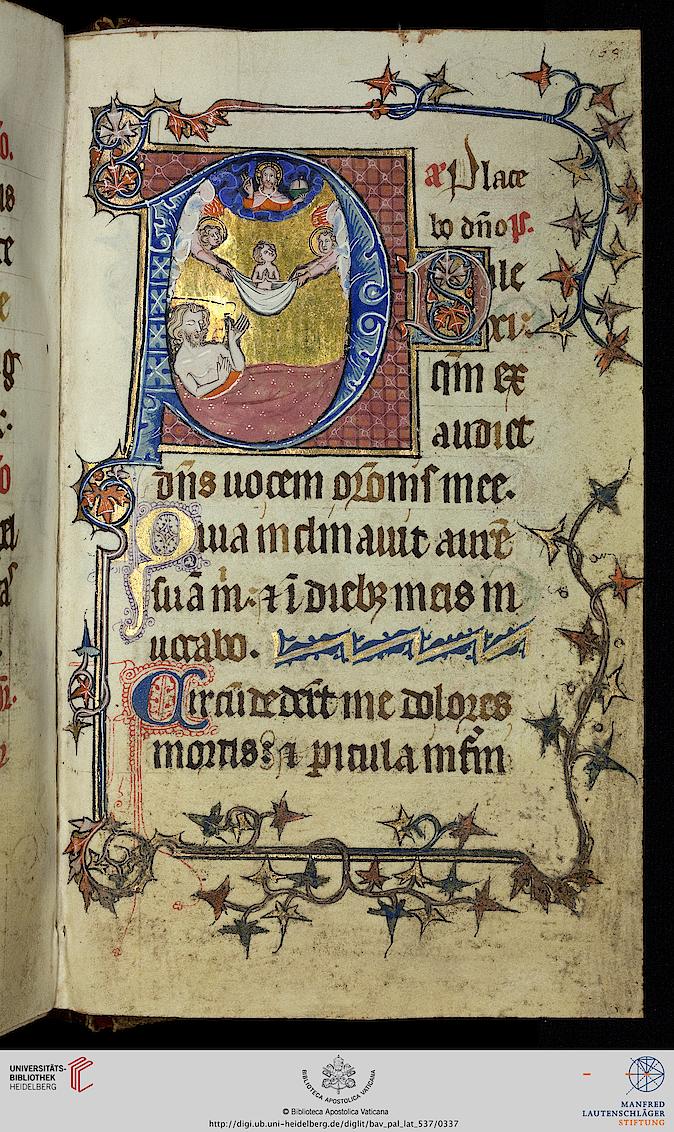 a͞n Place
bo dño ps.
Dile
xi:
qm̄ ex
audiet
dñs uocem orōnis mee.
Quia inclinauit aurē
suā m: ⁊ ī diebȝ meis in
uocabo.
Circūdedert me dolores
mortis: ⁊ picula infīn
UNIVERSITÄTS-
BIBLIOTHEK
HEIDELBERG
BIBLIOTECA APOSTOLICA VATICANA
© Biblioteca Apostolica Vaticana
http://digi.ub.uni-heidelberg.de/diglit/bav_pal_lat_537/0337
MANFRED
LAUTENSCHLÄGER
STIFTUNG